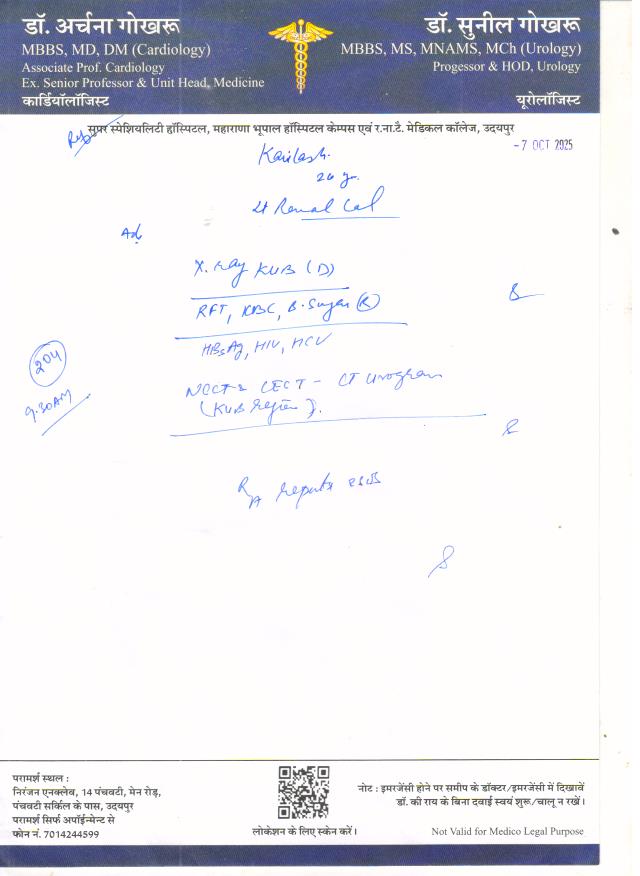 डॉ. अर्चना गोखरू
MBBS, MD, DM (Cardiology)
Associate Prof. Cardiology
Ex. Senior Professor & Unit Head, Medicine
कार्डियॉलॉजिस्ट
डॉ. सुनील गोखरू
MBBS, MS, MNAMS, MCh (Urology)
Progessor & HOD, Urology
यूरोलॉजिस्ट
सुपर स्पेशियलिटी हॉस्पिटल, महाराणा भूपाल हॉस्पिटल केम्पस एवं र.ना.टै. मेडिकल कॉलेज, उदयपुर
-7 OCT 2025
Kailash.
26 yr.
Lt Renal Cal
Ad
X. Ray KUB (D)
RFT, CBC, B. Sugar (R)
HBsAg, HIV, HCV
204
9.30AM
NCCT & CECT - CT Urogram
(KUB Region).
R/A reports
परामर्श स्थल :
निरंजन एनक्लेव, 14 पंचवटी, मेन रोड़,
पंचवटी सर्किल के पास, उदयपुर
परामर्श सिर्फ अपॉईन्मेन्ट से
फोन नं. 7014244599
लोकेशन के लिए स्केन करें।
नोट : इमरजेंसी होने पर समीप के डॉक्टर/इमरजेंसी में दिखावें
डॉ. की राय के बिना दवाई स्वयं शुरू/चालू न रखें।
Not Valid for Medico Legal Purpose